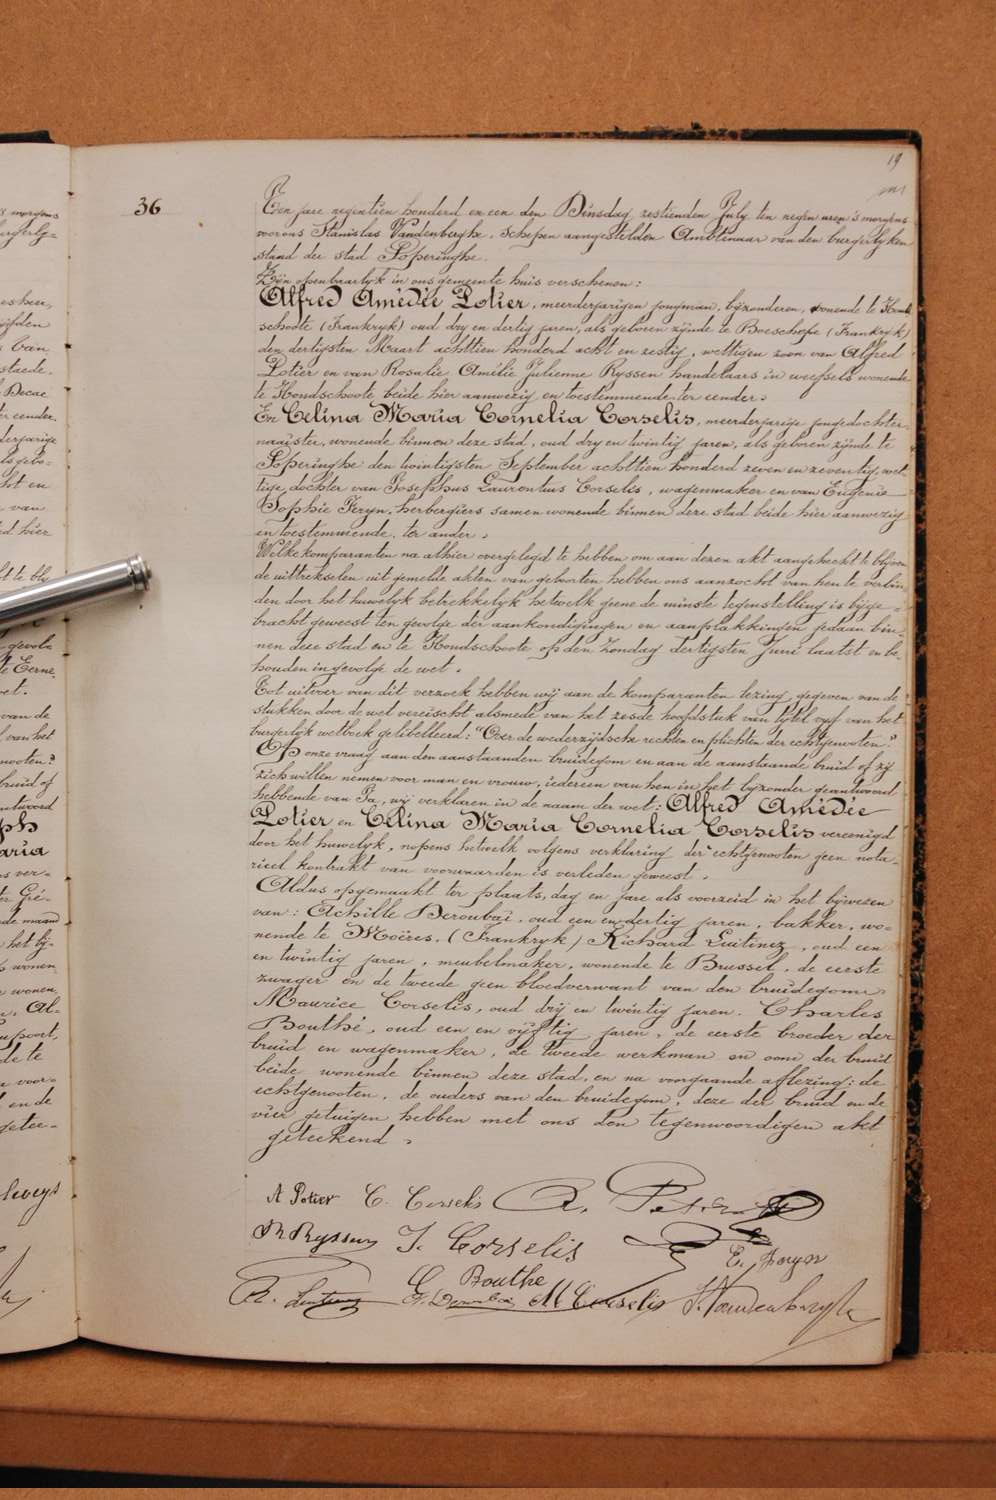 19
36
Een jare negentien honderd en een den Dinsdag, zestienden July ten negen uren 's morgens
voor ons Stanislas Vandenberghe, Schepen aangestelden Ambtenaar van den burgerlyken
stand der stad Poperinghe.
Zyn openbaarlyk in ons gemeente huis verschenen:
Alfred Amédée Potier, meerderjarigen jongman, byzonderen, wonende te Hond-
schoote (Frankryk) oud dry en dertig jaren, als geboren zynde te Boeschepe (Frankryk)
den dertigsten Maart achttien honderd acht en zestig, wettigen zoon van Alfred
Potier en van Rosalie Amélie Julienne Ryssen handelaars in weefsels wonende
te Hondschoote beide hier aanwezig en toestemmende ter eender.
En Celina Maria Cornelia Corselis, meerderjarige jongedochter,
naaister, wonende binnen deze stad, oud dry en twintig jaren, als geboren zynde te
Poperinghe den twintigsten September achttien honderd zeven en zeventig, wet-
tige dochter van Josephus Laurentius Corselis, wagenmaker en van Eugenie
Sophie Feryn, herbergiers samen wonende binnen deze stad beide hier aanwezig
en toestemmende, ter ander.
Welke komparanten na alhier overgelegd te hebben om aan dezen akt aangehecht te blyven
de uittrekselen uit gemelde akten van geboorten hebben ons aanzocht van hen te verbin-
den door het huwelyk betrekkelyk hetwelk geene de minste tegenstelling is byge-
bracht geweest ten gevolge der aankondigingen en aanplakkingen gedaan bin-
nen deze stad en te Hondschoote op den Zondag dertigsten Juni laatst en be-
houden ingevolge de wet.
Tot uitvoer van dit verzoek hebben wy aan de komparanten lezing gegeven van de
stukken door de wet vereischt alsmede van het zesde hoofdstuk van tytel vyf van het
burgerlyk wetboek gelibelleerd: "Over de wederzydsche rechten en plichten der echtgenooten."
Op onze vraag aan den aanstaanden bruidegom en aan de aanstaande bruid of zy
zich willen nemen voor man en vrouw, iedereen van hen in het byzonder geantwoord
hebbende van Ja, wy verklaren in de naam der wet: Alfred Amédée
Potier en Celina Maria Cornelia Corselis vereenigd
door het huwelyk, nopens hetwelk volgens verklaring der echtgenooten geen nota-
rieel kontrakt van voorwaarden is verleden geweest.
Aldus opgemaakt ter plaats, dag en jare als voorzeid in het bywezen
van: Achille Deroubai, oud een en dertig jaren, bakker, wo-
nende te Moëres, (Frankryk) Richard Luitinez, oud een
en twintig jaren, meubelmaker, wonende te Brussel, de eerste
zwager en de tweede geen bloedverwant van den bruidegom.
Maurice Corselis, oud dry en twintig jaren. Charles
Bouthé, oud een en vyftig jaren, de eerste broeder der
bruid en wagenmaker, de tweede werkman en oom der bruid
beide wonende binnen deze stad, en na voorgaande aflezing: de
echtgenooten, de ouders van den bruidegom, deze der bruid en de
vier getuigen hebben met ons den tegenwoordigen akt
geteekend.
A Potier C. Corselis A. Potier
R Ryssen J. Corselis E. Feryn
Bouthe
M Corselis S. Vandenberghe